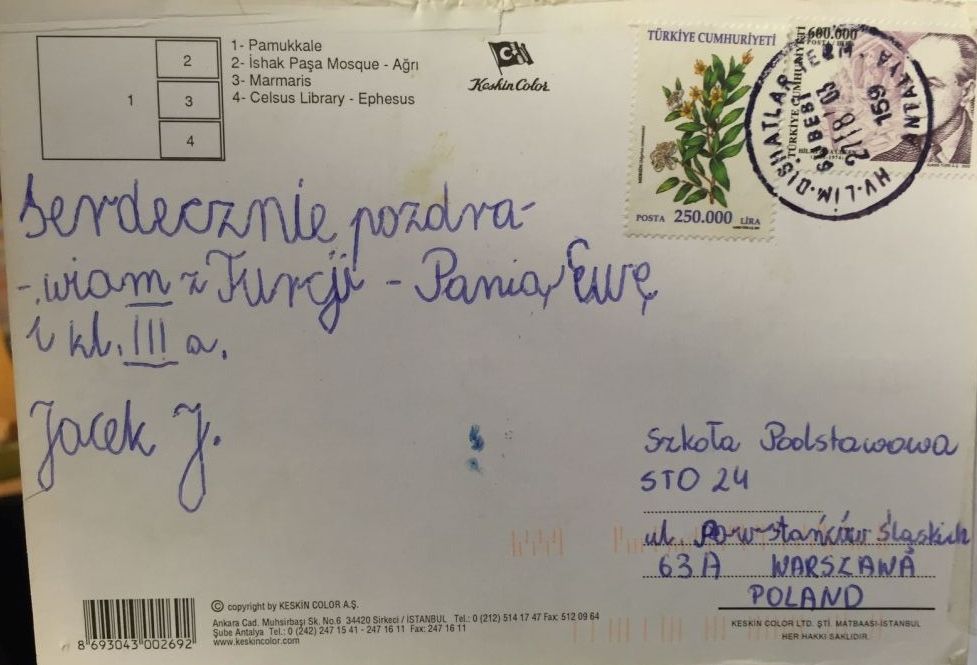 1
2
3
4
1- Pamukkale
2- İshak Paşa Mosque - Ağrı
3- Marmaris
4- Celsus Library - Ephesus
Keskin Color
TÜRKİYE CUMHURİYETİ
POSTA 250.000 LİRA
600.000
TÜRKİYE CUMHURİYETİ
HV.LİM.DIŞHATLAR
ANTALYA
159
Serdecznie pozdra-
-wiam z Turcji - Panią Ewę
i kl. III a.
Jacek J.
Szkoła Podstawowa
STO 24
ul. Powstańców Śląskich
63A WARSZAWA
POLAND
8 693043 002692
© copyright by KESKİN COLOR A.Ş.
Ankara Cad. Muhsirbaşı Sk. No.6 34420 Sirkeci / İSTANBUL Tel.: 0 (212) 514 17 47 Fax: 512 09 64
Şube Antalya Tel.: 0 (242) 247 15 41 - 247 16 11 Fax: 247 16 11
www.keskincolor.com
KESKİN COLOR LTD. ŞTİ. MATBAASI-İSTANBUL
HER HAKKI SAKLIDIR.